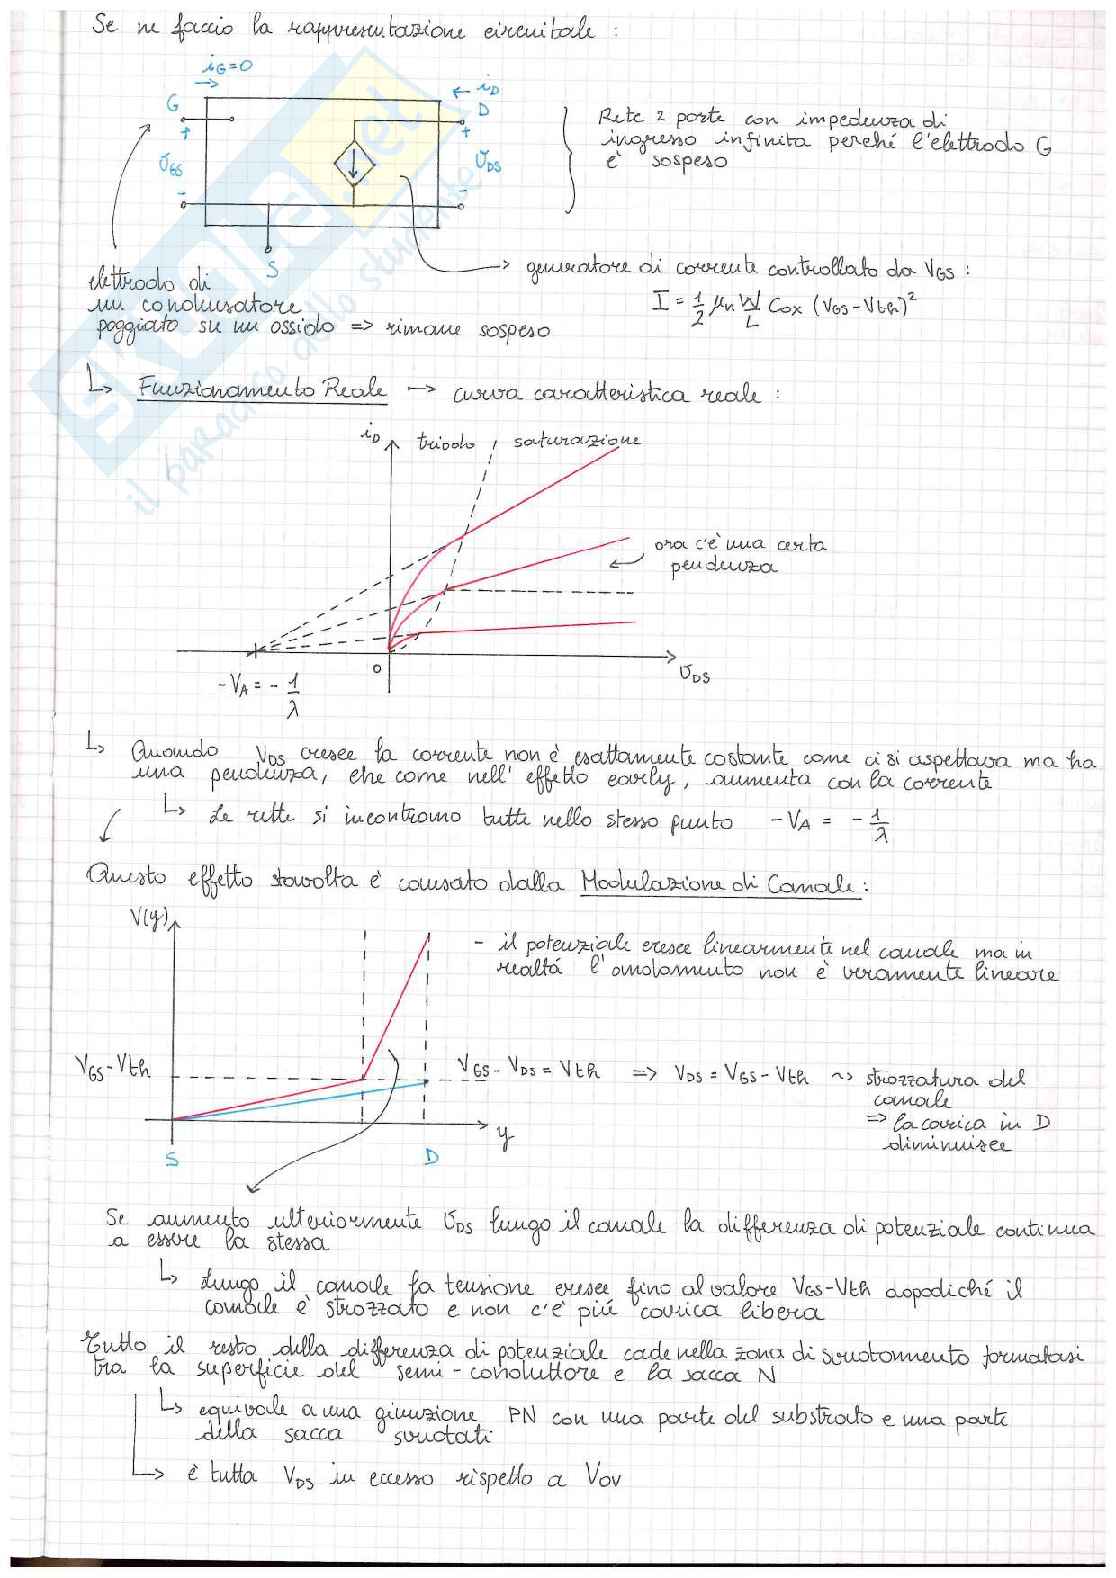 Se ne faccio la rappresentazione circuitale :
iG=0
iD
G
D
+
+
VGS
VDS
-
-
S
Rete 2 porte con impedenza di
ingresso infinita perché l'elettrodo G
è sospeso
elettrodo di
un condensatore
poggiato su un ossido => rimane sospeso
generatore di corrente controllato da VGS :
I = 1/2 μn W/L Cox (VGS-Vth)²
Funzionamento Reale → curva caratteristica reale :
iD
triodo
saturazione
ora c'è una certa
pendenza
0
VDS
-VA = - 1/λ
Quando VDS cresce la corrente non è esattamente costante come ci si aspettava ma ha
una pendenza, che come nell' effetto early, aumenta con la corrente
Le rette si incontrano tutte nello stesso punto -VA = - 1/λ
Questo effetto stavolta è causato dalla Modulazione di Canale :
V(y)
- il potenziale cresce linearmente nel canale ma in
realtá l'andamento non è veramente lineare
VGS-Vth
VGS - VDS = Vth => VDS = VGS - Vth ~> strozzatura del
canale
=> la carica in D
diminuisce
y
S
D
Se aumento ulteriormente VDS lungo il canale la differenza di potenziale continua
a essere la stessa
Lungo il canale la tensione cresce fino al valore VGS-Vth dopodiché il
canale è strozzato e non c'è piú carica libera
Tutto il resto della differenza di potenziale cade nella zona di svuotamento formatasi
tra la superficie del semi-conduttore e la sacca N
equivale a una giunzione PN con una parte del substrato e una parte
della sacca svuotati
è tutta VDS in eccesso rispetto a VOV
skuola.net
il paradiso dello studente